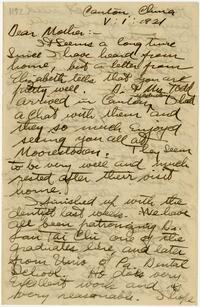 Canton China
V. 1. 1921
Dear Mother:-
It seems a long time
since I have heard from
home, but a letter from
Elizabeth tells that you are
pretty well. Dr & Mrs Todd
arrived in Canton. I had
a chat with them and
they so much enjoyed
seeing you all at
Moorestown. They seem
to be very well and much
rested after their visit
home.
I finished up with the
dentist last week. We have
all been patronizing Dr.
one of the
graduates here and later
from Univ. of Pa. Dental
School. He does very
excellent work and is
very reasonable. I hope